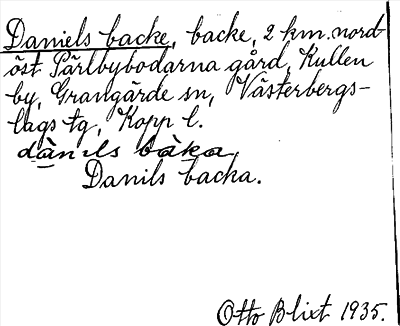 Daniels backe, backe, 2 km. nord
öst Pärlbybodarna gård, Kullen
by, Grangärde sn, Västerbergs-
lags tg, Kopp l.
dànıls bàka
Danils backa.
Otto Blixt 1935.